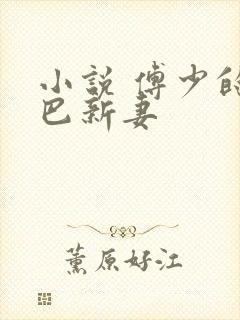 小說 傅少的
巴新妻
薰原好江